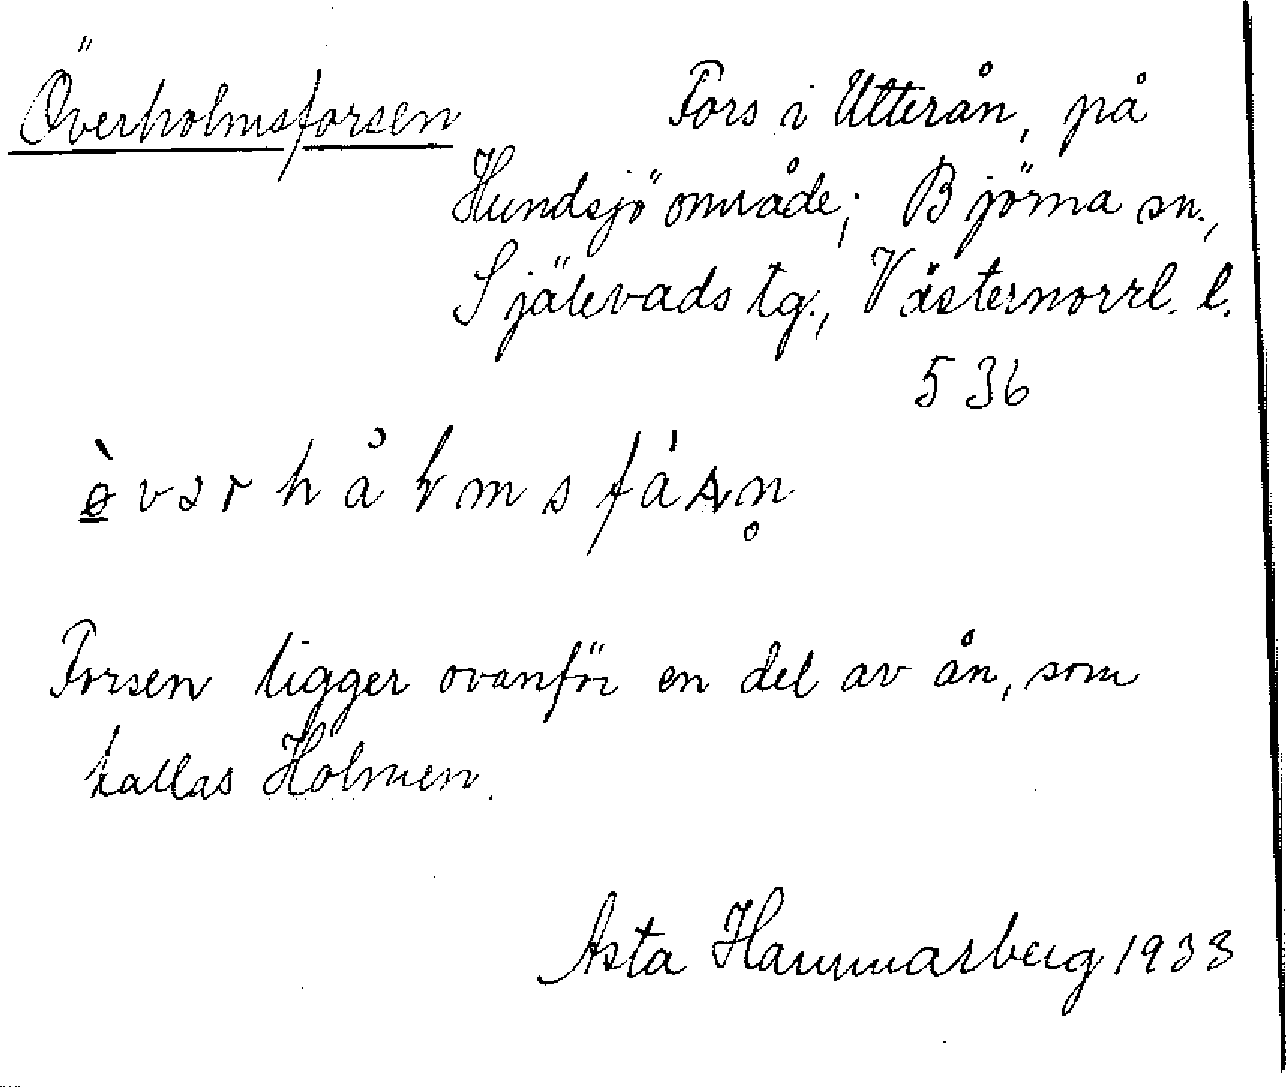 Överholmsforsen Fors i Utterån, på
Hundsjö område; Björna sn.,
Själevads tg., Västernorrl. l.
536
Forsen ligger ovanför en del av ån, som
kallas Holmen.
Asta Hammarberg 1933